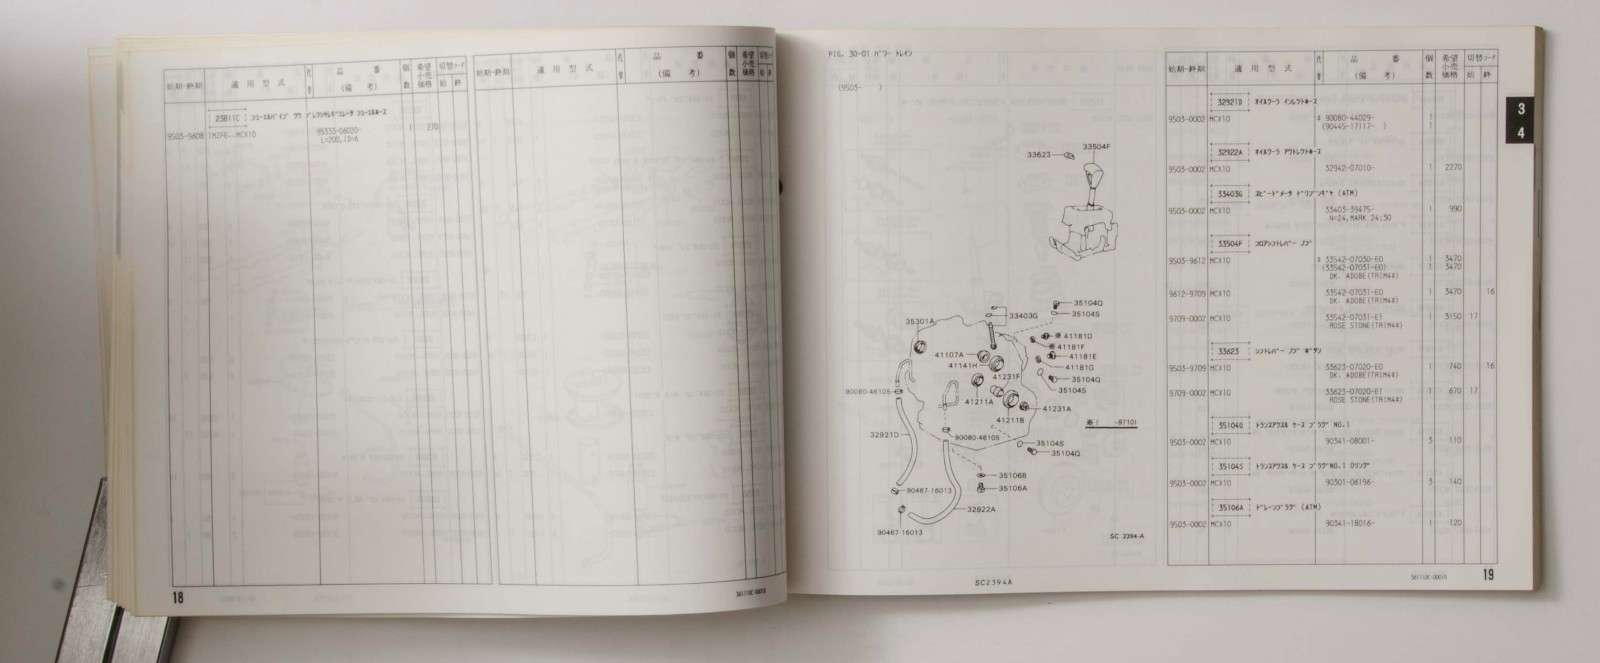 始期-終期 適用型式 代替 品番 (備考) 個数 希望小売価格 切替コード 始 終
始期-終期 適用型式 代替 品番 (備考) 個数 希望小売価格 切替コード 始 終
23811C フューエルパイプ
9503-9608 1MZFE..MCX10 95333-06020- 1 270
L=200,ID=6
18
FIG. 30-01 パワー トレイン
(9503- )
33504F
33623
35104Q
35104S
33403G
35301A
※ 41181D
※ 41181F
41107A
41181E
41141H
41181G
41231F
35104Q
35104S
90080-46105
41211A
41231A
41211B
※ ( -9710)
32921D
90080-46105
35104S
35104Q
35106B
90467-16013
35106A
32922A
90467-16013
SC 2394-A
SC2394A
始期-終期 適用型式 代替 品番 (備考) 個数 希望小売価格 切替コード 始 終
32921D オイルクーラ インレットホース
9503-0002 MCX10 # 90080-44029- 1
(90445-17117- ) 1
32922A オイルクーラ アウトレットホース
9503-0002 MCX10 32942-07010- 1 2270
33403G スピードメータ ドリブンギヤ (ATM)
9503-0002 MCX10 33403-39475- 1 990
N=24,MARK 24:30
33504F フロアシフトレバー ノブ
9503-9612 MCX10 # 33542-07030-E0 1 3470
(33542-07031-E0) 1 3470
DK. ADOBE(TRIM4#)
9612-9709 MCX10 33542-07031-E0 1 3470 16
DK. ADOBE(TRIM4#)
9709-0002 MCX10 33542-07031-E1 1 3150 17
ROSE STONE(TRIM4#)
33623 シフトレバー ノブ ボタン
9503-9709 MCX10 33623-07020-E0 1 740 16
DK. ADOBE(TRIM4#)
9709-0002 MCX10 33623-07020-E1 1 670 17
ROSE STONE(TRIM4#)
35104Q トランスアクスル ケース プラグ NO.1
9503-0002 MCX10 90341-08001- 3 110
35104S トランスアクスル ケース プラグNO.1 Oリング
9503-0002 MCX10 90301-06196- 3 140
35106A ドレーンプラグ (ATM)
9503-0002 MCX10 90341-18016- 1 120
3
4
19